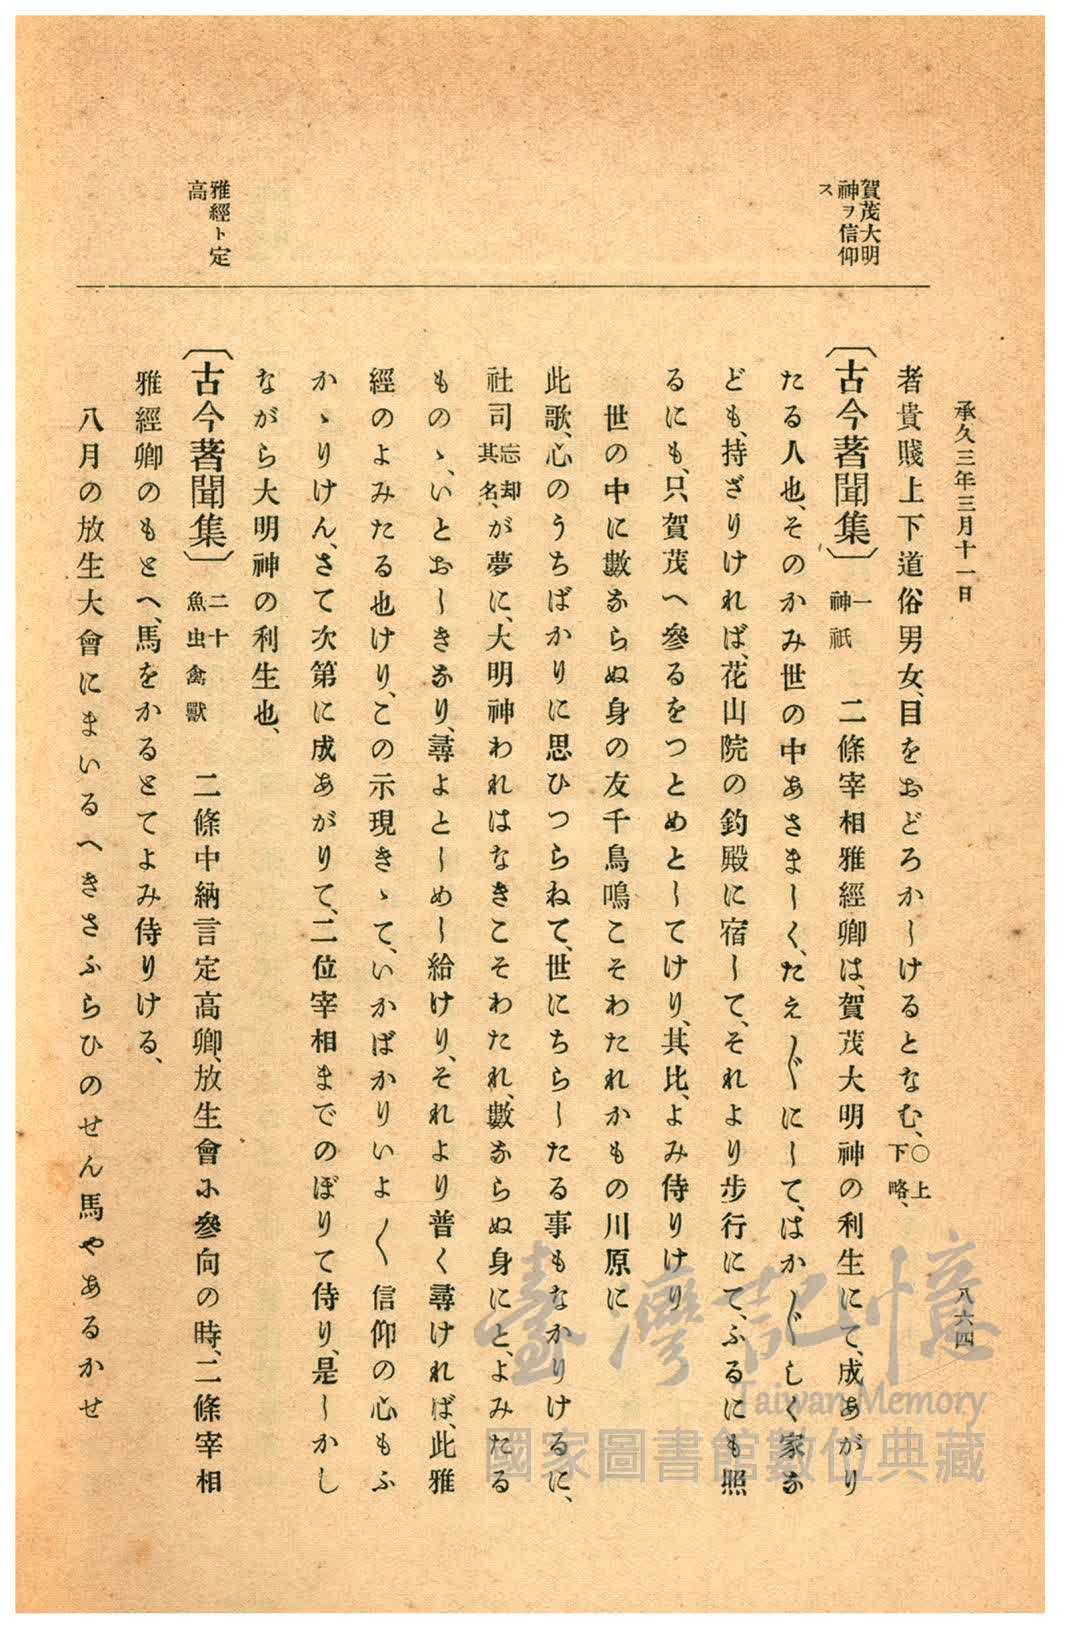 承久三年三月十一日
八六四
賀茂大明
神ヲ信仰
ス
雅經ト定
高
者貴賤上下道俗男女、目をおどろかしけるとなむ、○上下略、
〔古今著聞集〕一神祇 二條宰相雅經卿は、賀茂大明神の利生にて、成あがり
たる人也、そのかみ世の中あさましく、たえ〴〵にして、はか〴〵しく家な
ども、持ざりければ、花山院の釣殿に宿して、それより步行にて、ふるにも照
るにも、只賀茂へ參るをつとめとしてけり、其比、よみ侍りけり
世の中に數ならぬ身の友千鳥鳴こそわたれかもの川原に
此歌、心のうちばかりに思ひつらねて、世にちらしたる事もなかりけるに、
社司忘却其名、が夢に、大明神われはなきこそわたれ、數ならぬ身にと、よみたる
ものゝ、いとおしきなり、尋よとしめし給けり、それより普く尋ければ、此雅
經のよみたる也けり、この示現きゝて、いかばかりいよ〳〵信仰の心もふ
かゝりけん、さて次第に成あがりて、二位宰相までのぼりて侍り、是しかし
ながら大明神の利生也、
〔古今著聞集〕二十魚虫禽獸 二條中納言定高卿、放生會に參向の時、二條宰相
雅經卿のもとへ、馬をかるとてよみ侍りける、
八月の放生大會にまいるへきさふらひのせん馬やあるかせ
臺灣記憶
Taiwan Memory
國家圖書館數位典藏